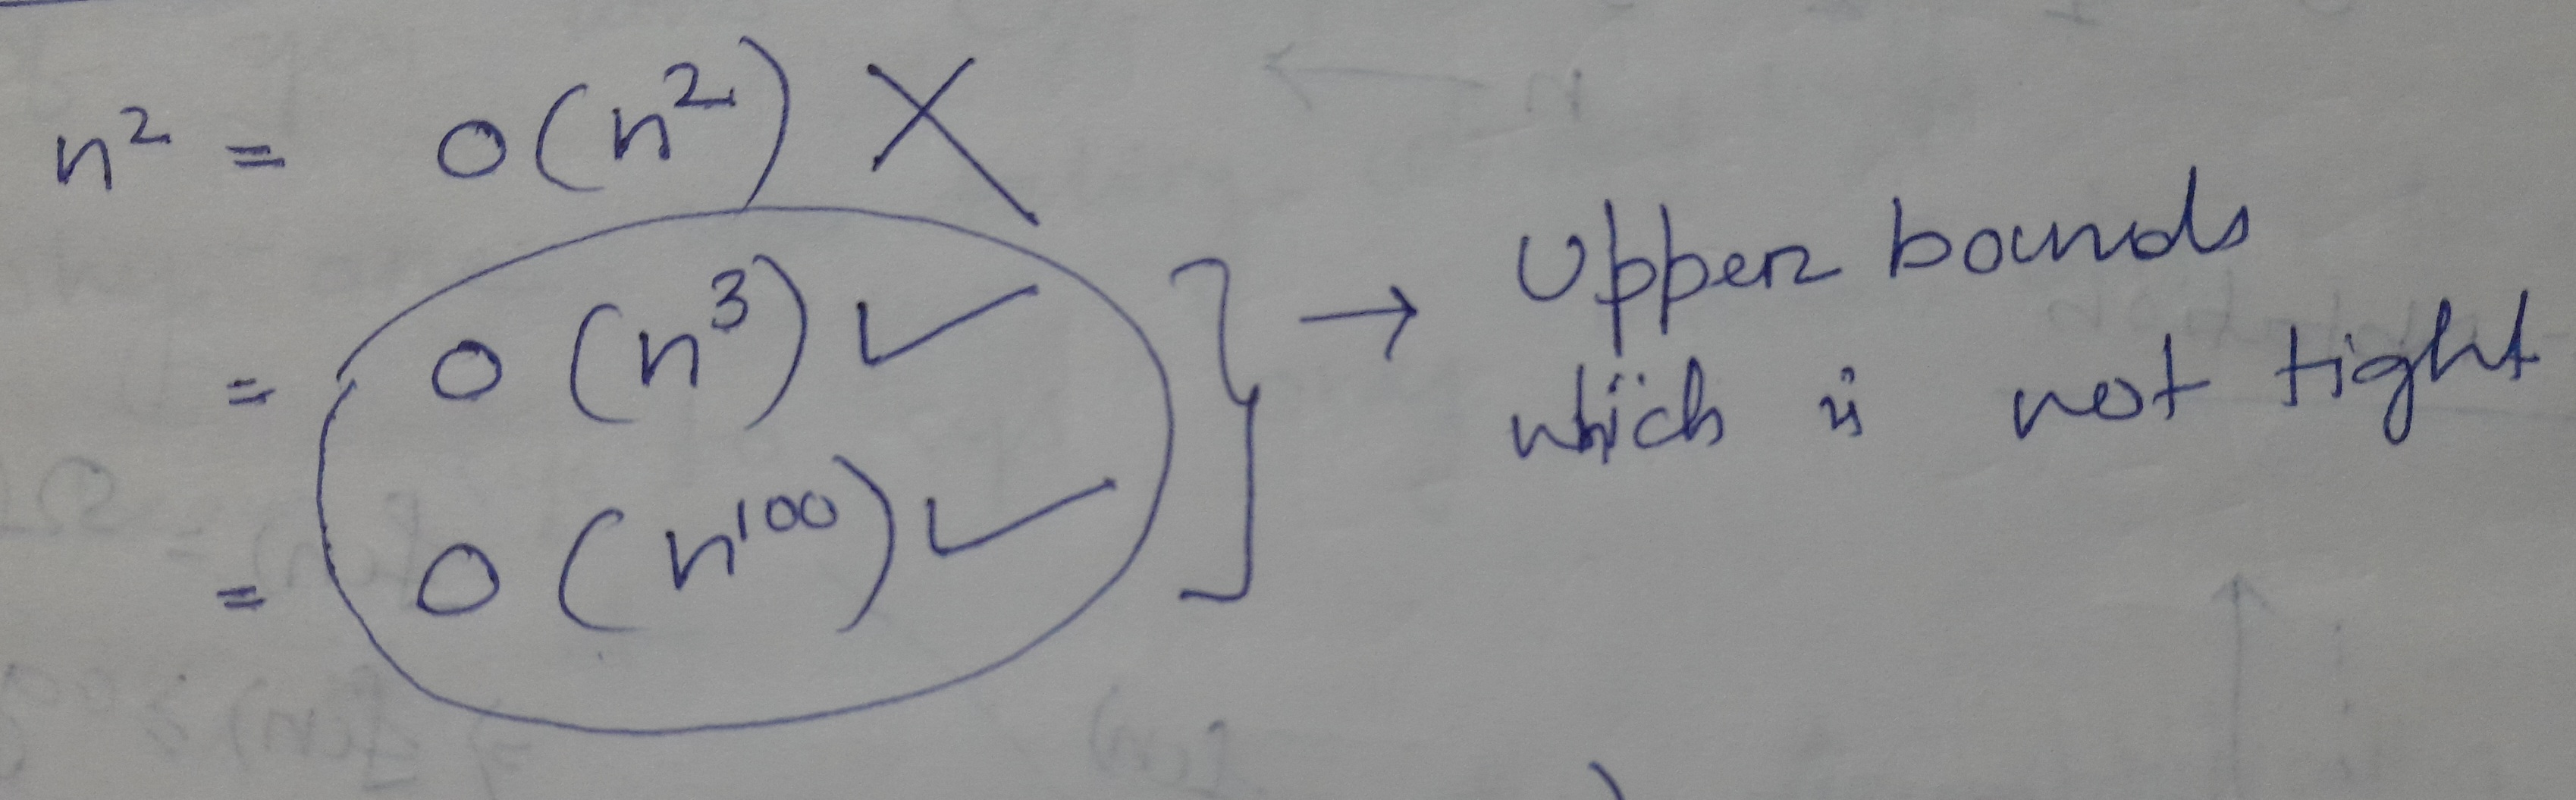 n² = o(n²) ✗
= o(n³) ✓
= o(n¹⁰⁰) ✓
} → Upper bounds
which is not tight